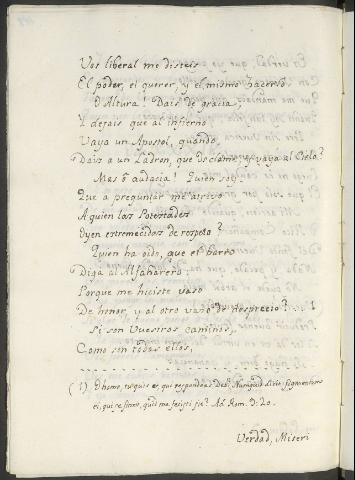 Vos liberal me disteis
El poder, el querer, y el mismo hacerlo.
O Altura! Dais de gracia,
Y dejais que al infierno
Vaya un Apostol, quando
Dais à un Ladron, que os clame, y vaya al Cielo?
Mas ò audacia! Quien soy
Que a preguntar me atrevo
A quien las Potestades
Oyen estremecidas de respeto?
Quien ha oido, que el barro
Diga al Alfaharero
Porque me hiciste vaso
De honor, y al otro vaso de desprecio? 1
Si son Vuestros caminos,
Como sin todas ellos,
(1) O homo, tu quis es, qui respondeas Deo? Numquid dicit figmentum
ei, qui se finxit, quid me fecisti sic? Ad Rom. 9. 20.
Verdad, Miseri